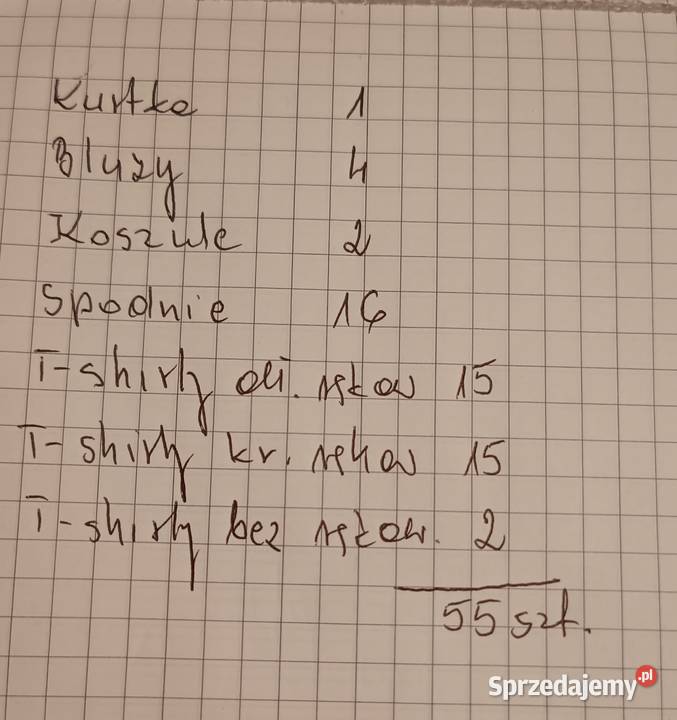 Kurtka 1
Bluzy 4
Koszule 2
Spodnie 16
T-shirty dł. rękaw 15
T-shirty kr. rękaw 15
T-shirty bez rękaw. 2
55 szt.
Sprzedajemy.pl